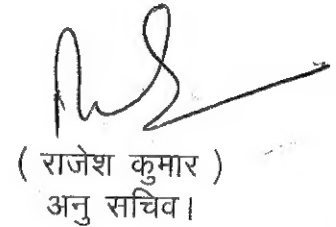 ( राजेश कुमार )
अनु सचिव।